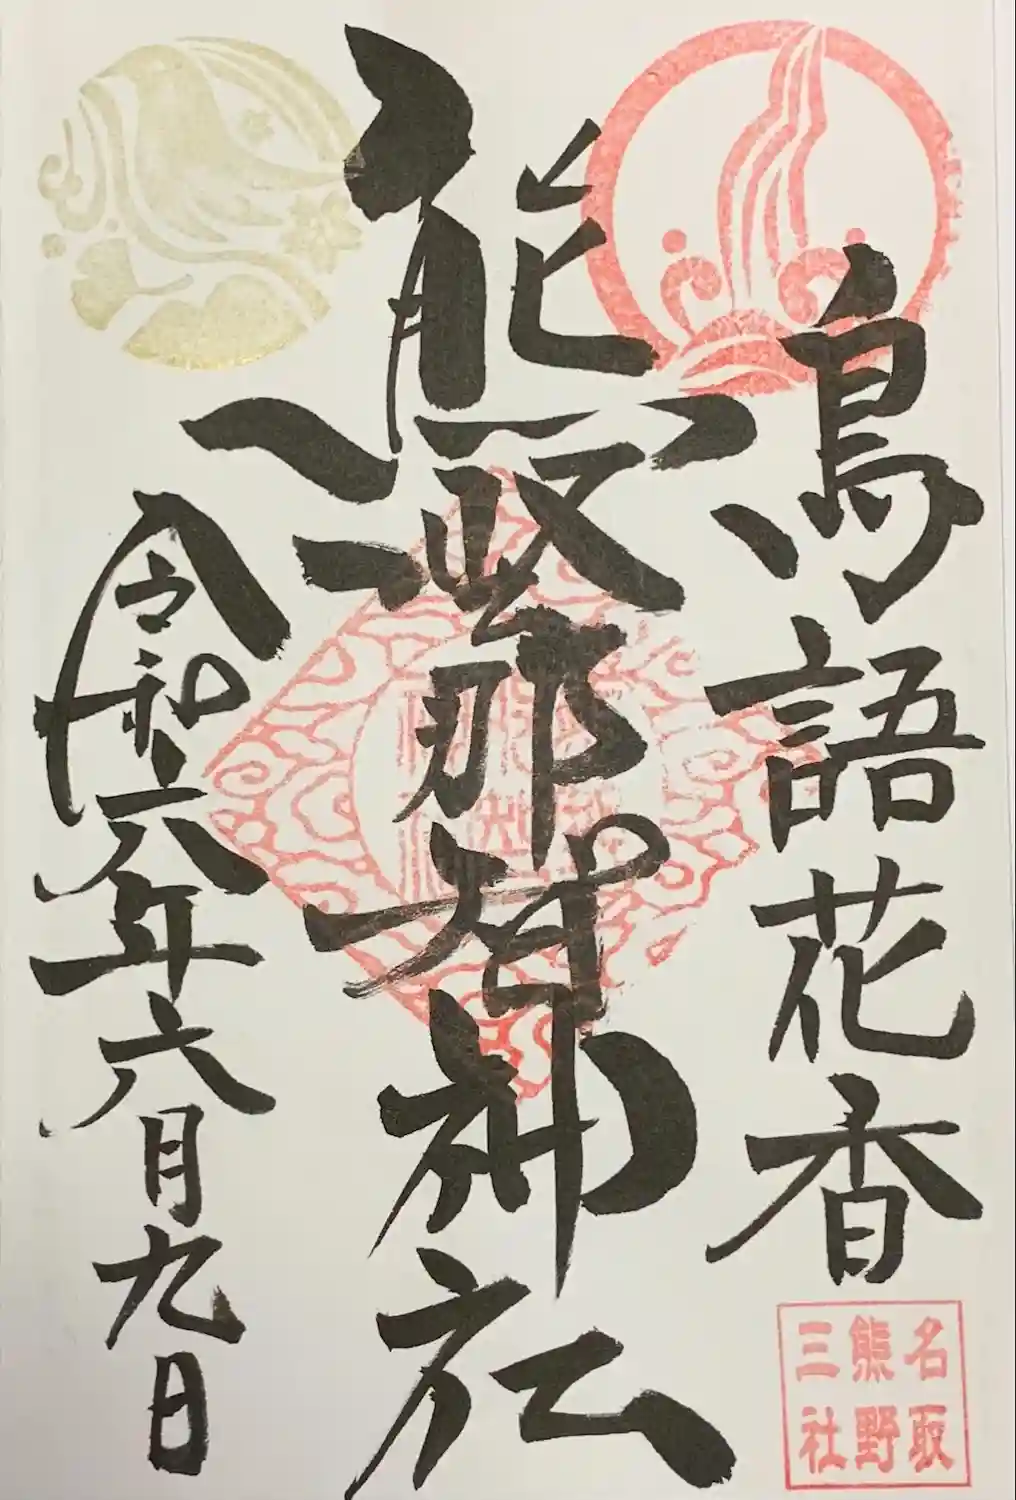 鳥語花香
名取
熊野
三社
熊野那智神社
令和六年六月九日